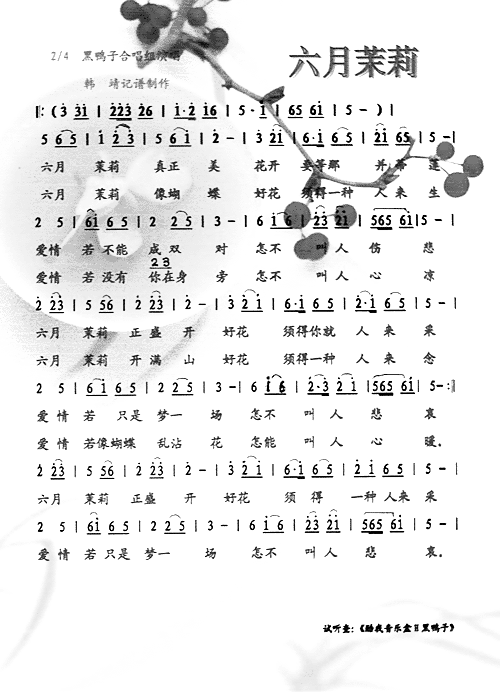 六月茉莉
2/4 黑鸭子合唱组演唱
韩 靖记谱制作
𝄆 ( 3 3 1 | 2 2 3 2 6 | 1 · 2 1 6 | 5 · 1 | 6 5 6 1 | 5 - ) |
5 6 5 | 1 2 3 | 5 6 1 | 2 - | 3 2 1 | 6 · 1 6 5 | 2 1 6 5 | 5 - |
六月 茉莉 真正 美 花开 要等那 并蒂 莲
六月 茉莉 像蝴 蝶 好花 须得一种 人来 生
2 5 | 6 1 6 5 | 2 2 5 | 3 - | 6 1 6 | 2 3 2 1 | 5 6 5 6 1 | 5 - |
爱情 若不能 成双 对 怎不 叫人 伤 悲
2 3
爱情 若没有 你在身 旁 怎不 叫人 心 凉
2 2 3 | 5 5 6 | 2 2 3 | 2 - | 3 2 1 | 6 · 1 6 5 | 2 · 1 6 5 | 5 - |
六月 茉莉 正盛 开 好花 须得你就 人来 采
六月 茉莉 开满 山 好花 须得一种 人来 念
2 5 | 6 1 6 5 | 2 2 5 | 3 - | 6 1 6 | 2 · 3 2 1 | 5 6 5 6 1 | 5 - 𝄇
爱情 若 只是 梦一 场 怎不 叫人 悲 哀
爱情 若像蝴蝶 乱沾 花 怎能 叫人 心 暖。
2 2 3 | 5 5 6 | 2 2 3 | 2 - | 3 2 1 | 6 · 1 6 5 | 2 1 6 5 | 5 - |
六月 茉莉 正盛 开 好花 须 得 一种 人来 采
2 5 | 6 1 6 5 | 2 2 5 | 3 - | 6 1 6 | 2 3 2 1 | 5 6 5 6 1 | 5 - |
爱情 若只是 梦一 场 怎不 叫人 悲 哀。
试听查:《酷我音乐盒 黑鸭子》